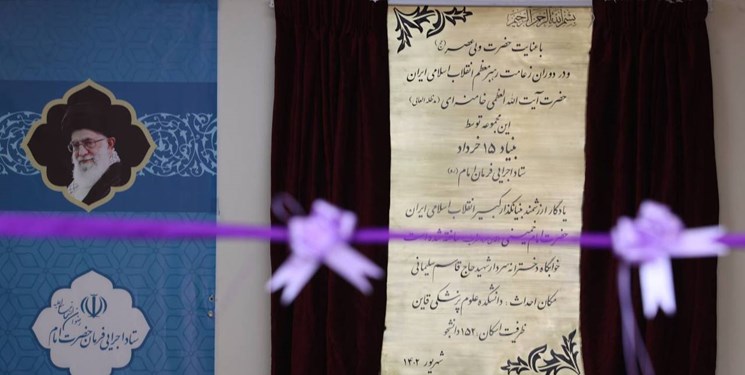 بسم الله الرحمن الرحیم
با عنایت حضرت ولی عصر (عج)
و در دوران زعامت رهبر معظم انقلاب اسلامی ایران
حضرت آیت الله العظمی خامنه ای (مدظله العالی)
این مجموعه توسط
بنیاد ۱۵ خرداد
ستاد اجرایی فرمان امام (ره)
یادگار ارزشمند بنیانگذار کبیر انقلاب اسلامی ایران
حضرت امام خمینی ساخته شده است
خوابگاه دخترانه سردار شهید حاج قاسم سلیمانی
مکان احداث : دانشکده علوم پزشکی قاین
ظرفیت اسکان : ۱۵۲ دانشجو
شهریور ۱۴۰۲
ستاد اجرایی فرمان حضرت امام